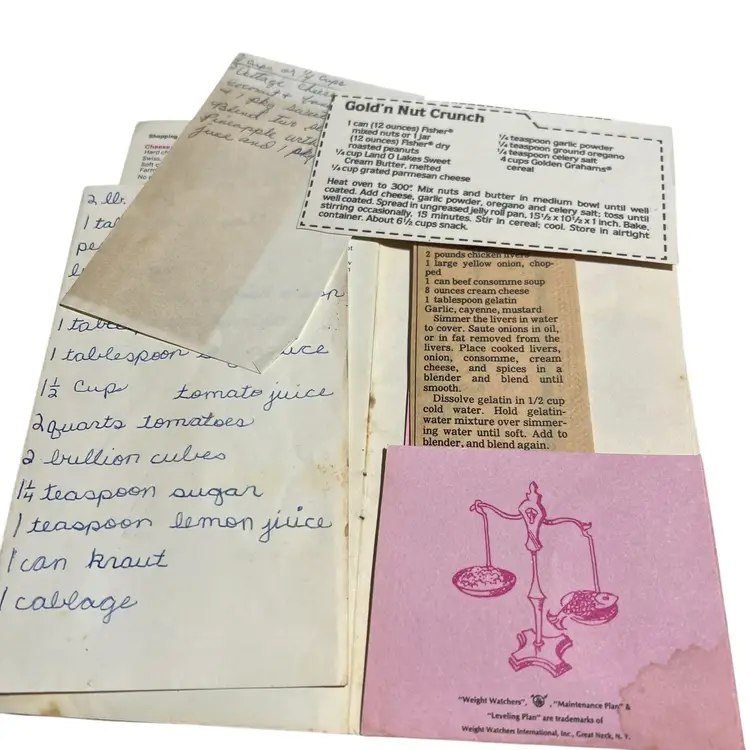 2 cups or 4 cups
Cottage cheese
Blend two
Pineapple with
juice and 1 pkg
Shopping
Cheese
Hard ch
Swiss,
Soft c
Farm
No
Gold'n Nut Crunch
1 can (12 ounces) Fisher®
mixed nuts or 1 jar
(12 ounces) Fisher® dry
roasted peanuts
¼ cup Land O Lakes Sweet
Cream Butter, melted
¼ cup grated parmesan cheese
¼ teaspoon garlic powder
¼ teaspoon ground oregano
¼ teaspoon celery salt
4 cups Golden Grahams®
cereal
Heat oven to 300°. Mix nuts and butter in medium bowl until well
coated. Add cheese, garlic powder, oregano and celery salt; toss until
well coated. Spread in ungreased jelly roll pan, 15½ x 10½ x 1 inch. Bake,
stirring occasionally, 15 minutes. Stir in cereal; cool. Store in airtight
container. About 6½ cups snack.
2 lb.
1 tab
pe
1 table
1 tablespoon
1½ Cup tomato juice
2 quarts tomatoes
2 bullion cubes
1¼ teaspoon sugar
1 teaspoon lemon juice
1 can kraut
1 cabbage
2 pounds chicken livers
1 large yellow onion, chop-
ped
1 can beef consomme soup
8 ounces cream cheese
1 tablespoon gelatin
Garlic, cayenne, mustard
Simmer the livers in water
to cover. Saute onions in oil,
or in fat removed from the
livers. Place cooked livers,
onion, consomme, cream
cheese, and spices in a
blender and blend until
smooth.
Dissolve gelatin in 1/2 cup
cold water. Hold gelatin-
water mixture over simmer-
ing water until soft. Add to
blender, and blend again.
"Weight Watchers", , "Maintenance Plan" &
"Leveling Plan" are trademarks of
Weight Watchers International, Inc., Great Neck, N. Y.